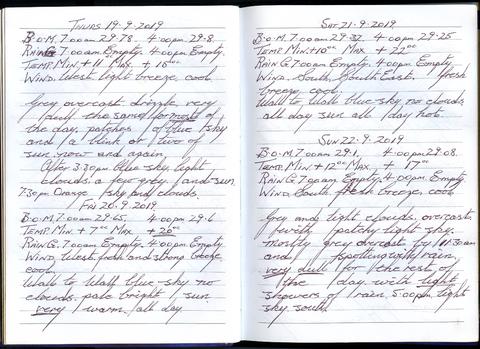 Thurs 19-9-2019
B.O.M. 7.00am 29.78. 4.00pm 29.8.
Rain G. 7.00am Empty. 4.00pm Empty.
Temp Min. + 11°° Max. + 18°°
Wind. West light breeze, cool
Grey overcast drizzle, very
dull the same for most of
the day, patches of blue sky
and a blink at two of
sun now and again.
After 3.30pm blue sky, light
clouds, a few grey, and sun.
7.30pm Orange sky and clouds.
Fri 20-9-2019
B.O.M. 7.00am 29.65. 4.00pm 29.6
Temp. Min. + 7°° Max + 20°°
Rain G. 7.00am Empty. 4.00pm Empty
Wind. West, fresh and strong breeze
cool.
Wall to Wall blue sky no
clouds. pale bright sun
very warm all day
Sat 21-9-2019
B.O.M. 7.00am 29.32. 4.00pm 29.25
Temp Min. +10°° Max + 22°°
Rain G. 7.00am Empty. 4.00pm Empty.
Wind. South, South East. fresh
breeze, cool.
Wall to Wall blue sky, no clouds
all day sun all day hot.
Sun 22-9-2019
B.O.M. 7.00am 29.1. 4.00pm 29.08.
Temp. Min. + 12°° Max. + 17°°
Rain G. 7.00am Empty. 4.00pm Empty
Wind. South fresh breeze, cool
Grey and light clouds, overcast
with patchy light sky.
mostly grey overcast by 11.30am
and spotting with rain,
very dull for the rest of
the day with light
showers of rain. 5.00pm light
sky south